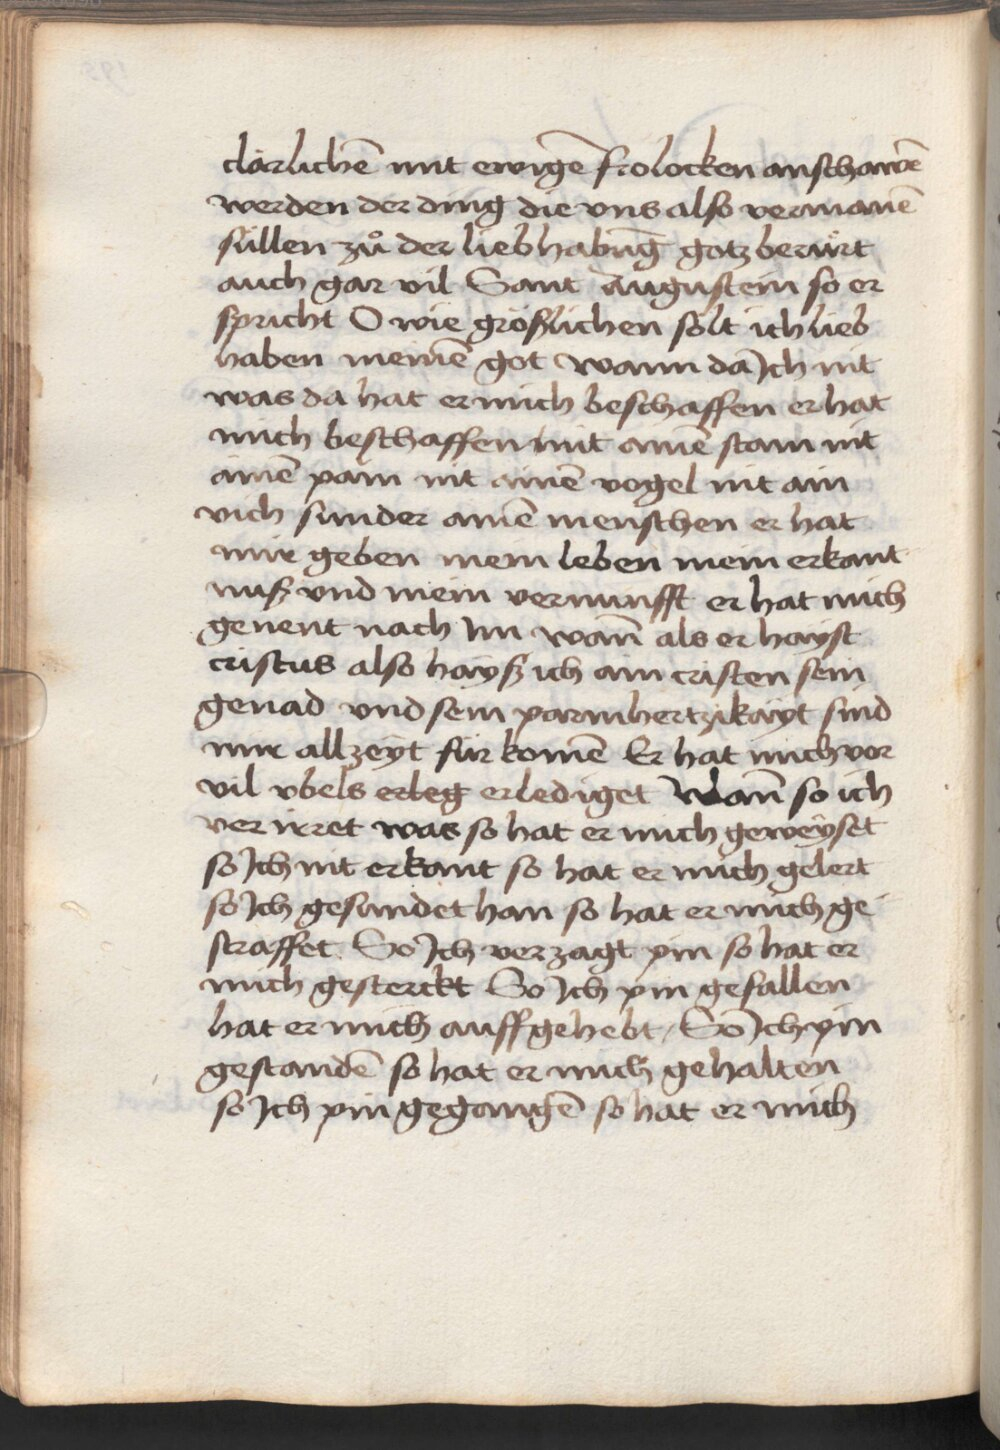 clärlichē mit ewigē frolocken anschawē
werden der ding die vns also vermanē
süllen zů der liebhabūg gotz berürt
auch gar vil Sant augustein so er
spricht O wie größlichen solt ich lieb
haben meinē got wann da Ich nit
was da hat er mich beschaffen er hat
mich beschaffen nit ainē stain nit
ainē pam nit ainē vogel nit ain
vich sunder ainē menschen er hat
mir geben mein leben mein erkant
nuß vnd mein vernunfft er hat mich
genent nach Im wañ als er hayst
cristus also hayß ich ain cristen sein
genad vnd sein parmhertzikayt sind
mir allzeyt für komē Er hat mich vor
vil vbels erleg erlediget Wañ so ich
ver irret was so hat er mich geweyset
so Ich nit erkant so hat er mich gelert
so Ich gesundet han so hat er mich ge
straffet So Ich verzagt pin so hat er
mich gesterckt So Ich pin gefallen
hat er mich auffgehebt / So Ich pin
gestandē so hat er mich gehalten
so Ich pin gegangē so hat er mich